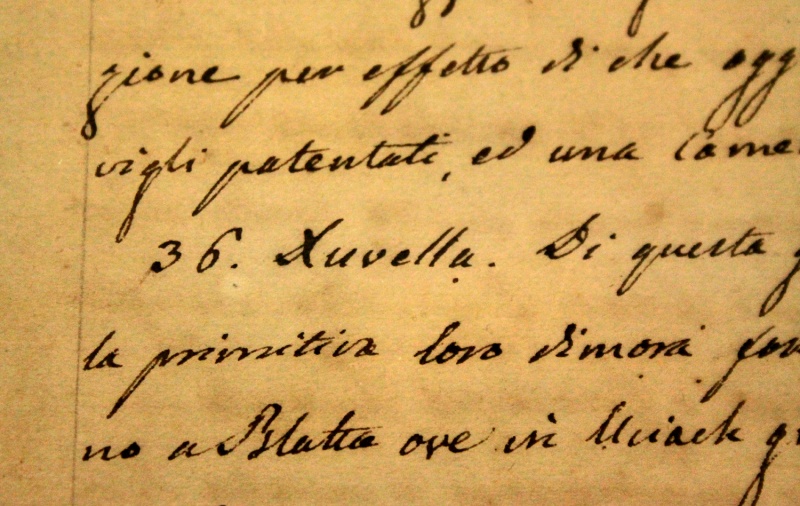 gione per effetto di che ogg
vigli patentati, ed una Came
36. Xuvella. Di questa g
la primitiva loro dimora fon
no a Blatta ove in